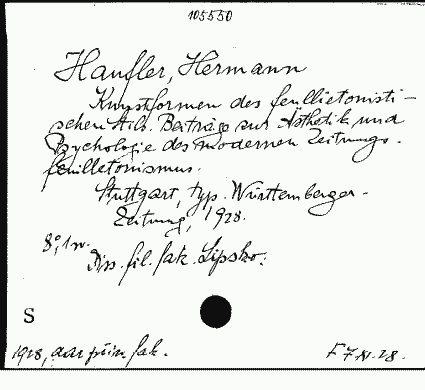 105550
Haufler, Hermann
Kunstformen des feullietonisti-
schen Stils. Beiträge zur Ästhetik und
Psychologie des modernen Zeitungs-
feuilletonismus.
Stuttgart, typ. Württemberger-
Zeitung, 1928.
8°, 1 v.
Diss. fil. fak. Lipsko.
S
1928, dar fak.
F 7 XI. 28.